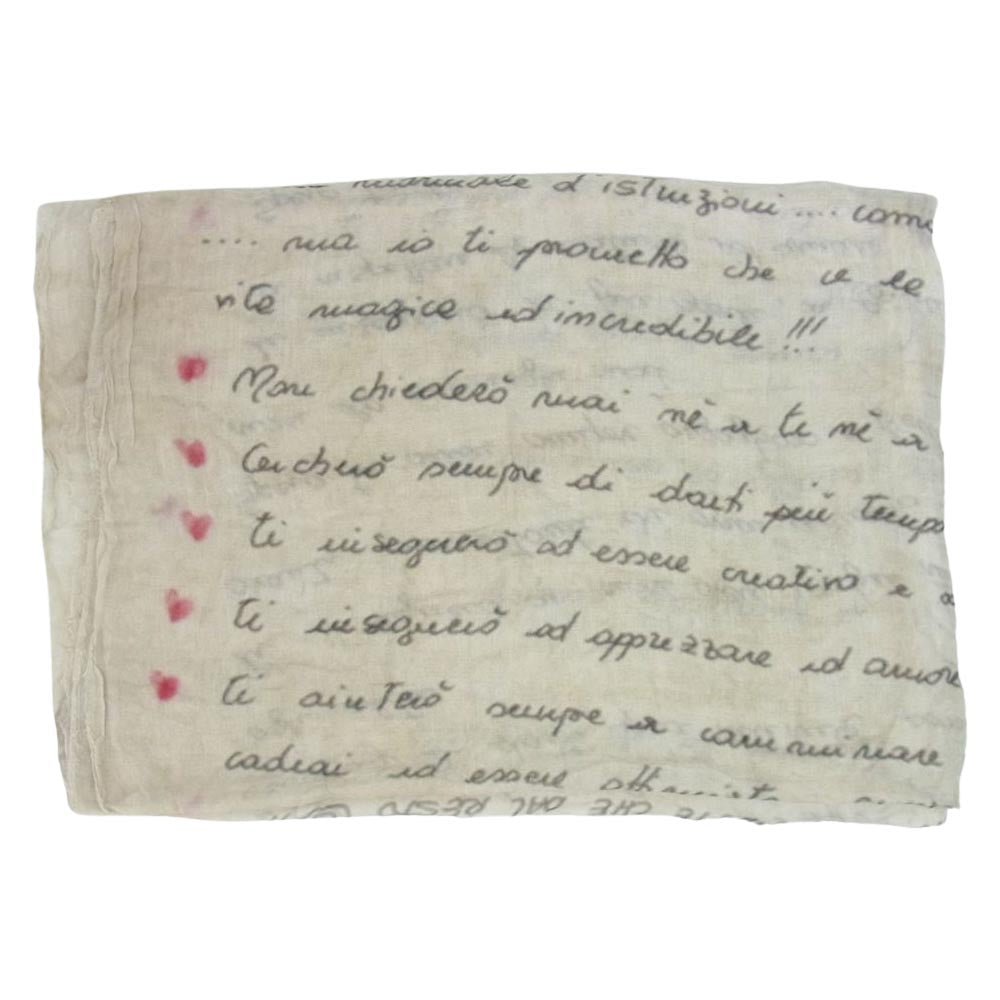 d'istruzioni.... com
.... ma io ti prometto che e le
vita magica ed incredibile!!!
Non chiederò mai nè a te nè a
Cercherò sempre di darti più tempo
ti insegnerò ad essere creativo e a
ti insegnerò ad apprezzare ed amore
ti aiuterò sempre a camminare
cadrai ed essere
CHE DAL RESTO